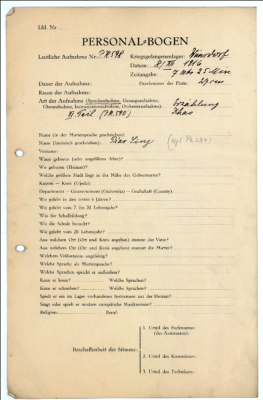 Lfd. Nr
PERSONAL-BOGEN
Lautliche Aufnahme Nr: PK 598
Kriegsgefangenenlager: Wünsdorf
Datum: 8/XII 1916
Zeitangabe: 7 Uhr 25 Min
Dauer der Aufnahme:
Durchmesser der Platte: 27 cm
Raum der Aufnahme:
Art der Aufnahme (Sprachaufnahme, Gesangsaufnahme, Choraufnahme, Instrumentenaufnahme, Orchesteraufnahme):
Erzählung
II Teil (PK 590)
Name (in der Muttersprache geschrieben):
Name (lateinisch geschrieben):
Vorname:
Wann geboren (oder ungefähres Alter)?
Wo geboren (Heimat)?
Welche größere Stadt liegt in der Nähe des Geburtsortes?
Kanton — Kreis (Ujedz):
Department — Gouvernement (Gubernija) — Grafschaft (County):
Wo gelebt in den ersten 6 Jahren?
Wo gelebt vom 7. bis 20. Lebensjahr?
Was für Schulbildung?
Wo die Schule besucht?
Wo gelebt vom 20. Lebensjahr?
Aus welchem Ort (Ort und Kreis angeben) stammt der Vater?
Aus welchem Ort (Ort und Kreis angeben) stammt die Mutter?
Welchem Volksstamm angehörig?
Welche Sprache als Muttersprache?
Welche Sprachen spricht er außerdem?
Kann er lesen? Welche Sprachen?
Kann er schreiben? Welche Sprachen?
Spielt er ein im Lager vorhandenes Instrument aus der Heimat?
Singt oder spielt er modern europäische Musikweisen?
Religion: Beruf:
Beschaffenheit der Stimme:
1. Urteil des Fachmannes (des Assistenten):
2. Urteil des Kommissars:
3. Urteil des Technikers: